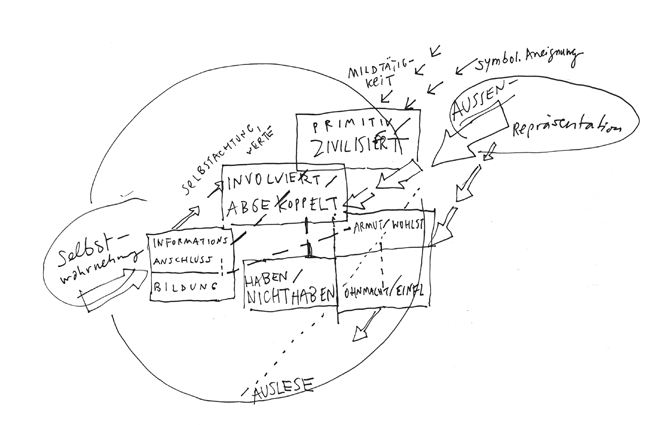 MILDTÄTIG-
KEIT
symbol. Aneignung
AUSSEN-
Repräsentation
PRIMITIV/
ZIVILISIERT
SELBSTACHTUNG,
WERTE
INVOLVIERT/
ABGEKOPPELT
Selbst-
wahrnehmung
INFORMATIONS
ANSCHLUSS
BILDUNG
ARMUT/WOHLST
HABEN/
NICHTHABEN
OHNMACHT/EINFL
AUSLESE